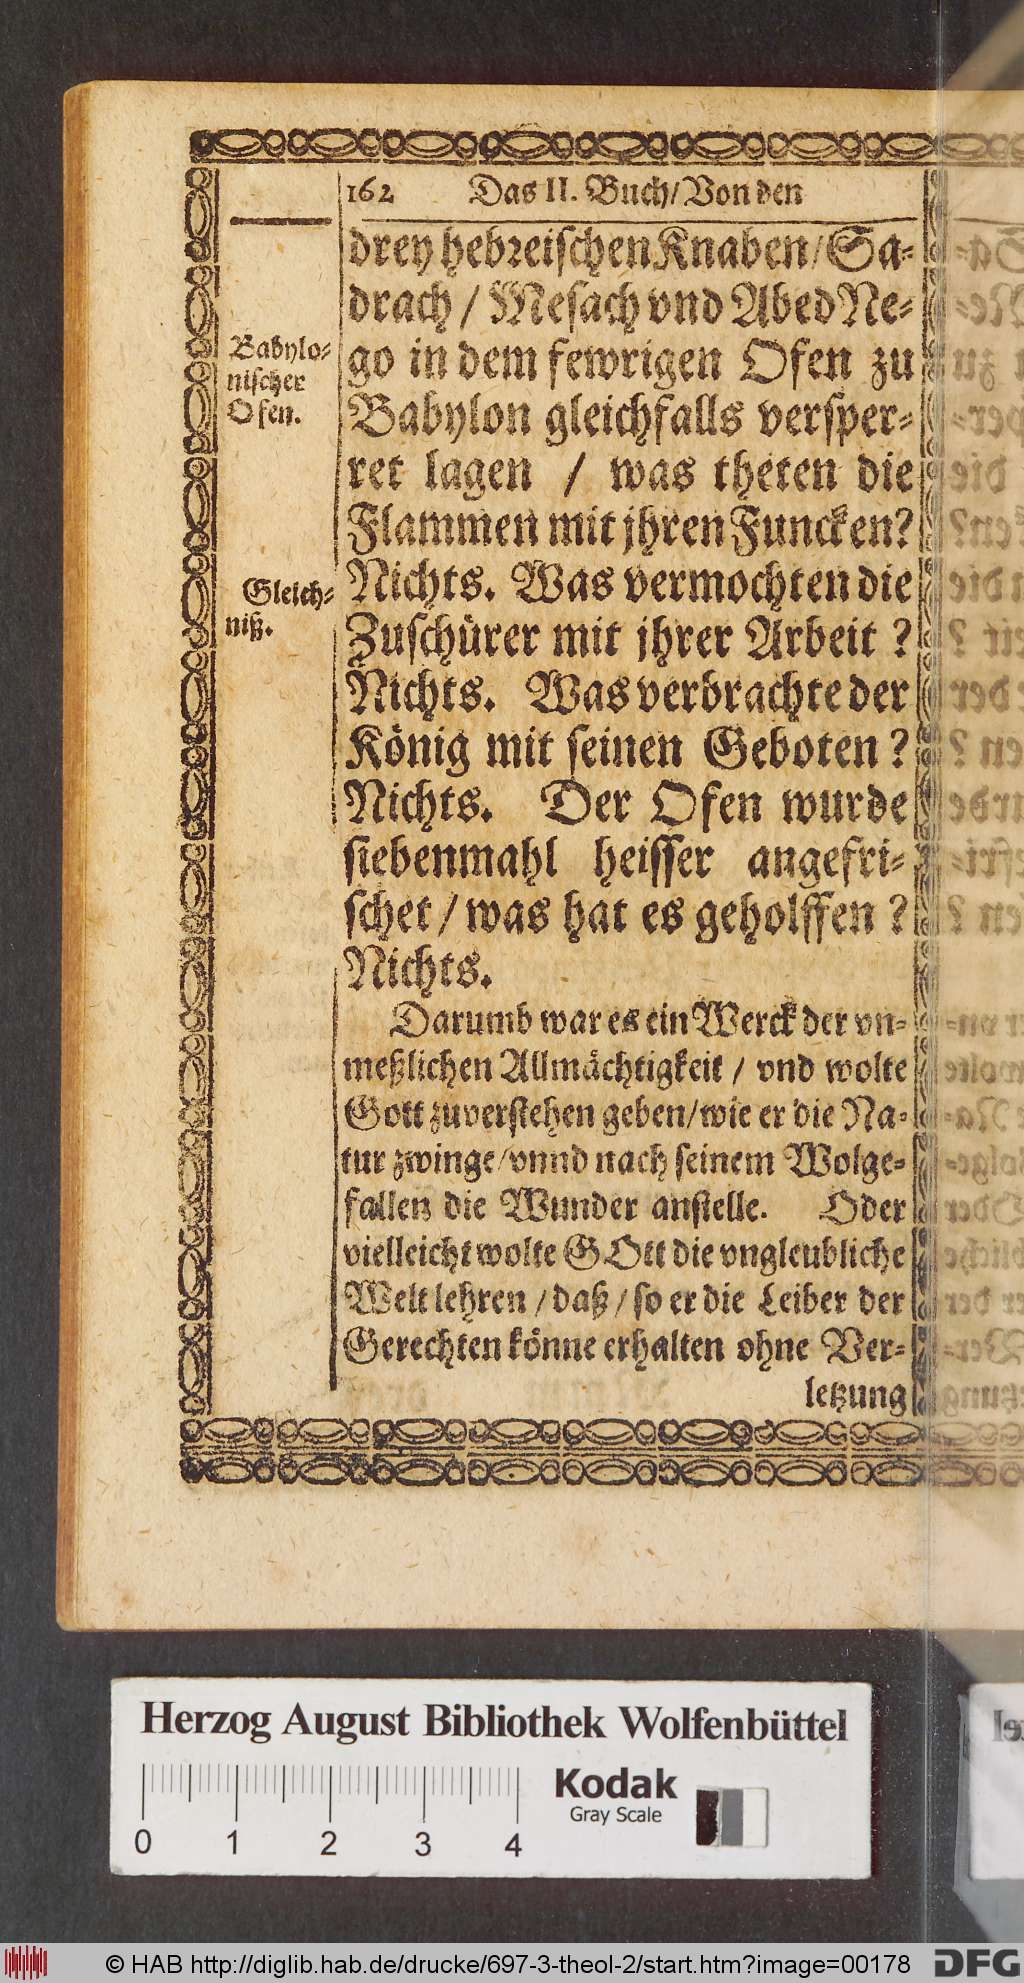 162 Das II. Buch/ Von den
drey hebreischen Knaben/ Sa-
drach / Mesach vnd Abed Ne-
go in dem fewrigen Ofen zu
Babylon gleichfalls versper-
ret lagen / was theten die
Flammen mit jhren Funcken?
Nichts. Was vermochten die
Zuschürer mit jhrer Arbeit ?
Nichts. Was verbrachte der
König mit seinen Geboten ?
Nichts. Der Ofen wurde
siebenmahl heisser angefri-
schet / was hat es geholffen ?
Nichts.
Babylo-
nischer
Ofen.
Gleich-
niß.
Darumb war es ein Werck der vn-
meßlichen Allmächtigkeit / vnd wolte
Gott zuverstehen geben/ wie er die Na-
tur zwinge/ vnnd nach seinem Wolge-
fallen die Wunder anstelle. Oder
vielleicht wolte GOtt die vngleubliche
Welt lehren / daß / so er die Leiber der
Gerechten könne erhalten ohne Ver-
letzung
Herzog August Bibliothek Wolfenbüttel
0 1 2 3 4
Kodak
Gray Scale
© HAB http://diglib.hab.de/drucke/697-3-theol-2/start.htm?image=00178
DFG